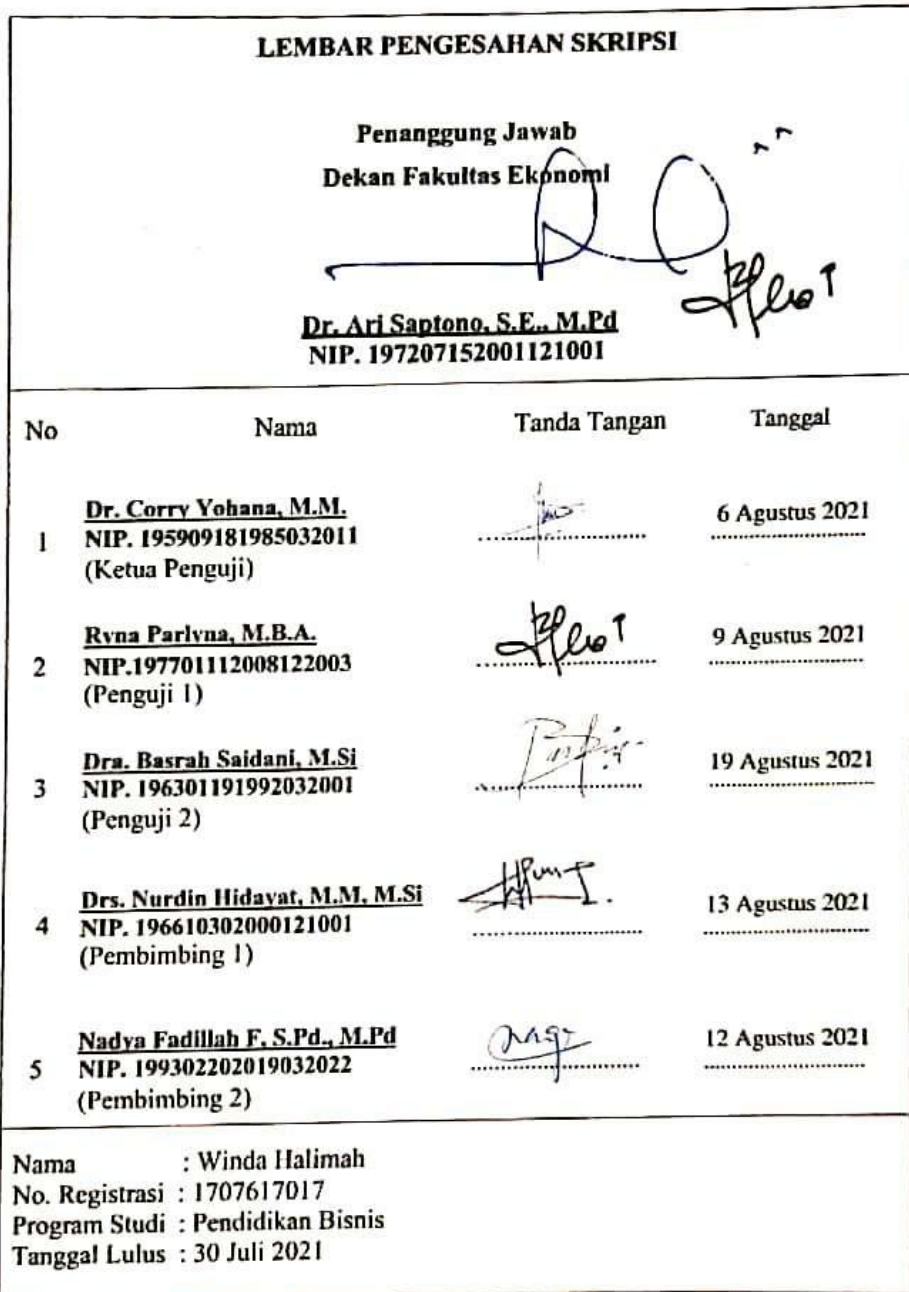 LEMBAR PENGESAHAN SKRIPSI
Penanggung Jawab
Dekan Fakultas Ekonomi
Dr. Ari Saptono, S.E., M.Pd
NIP. 197207152001121001
No Nama Tanda Tangan Tanggal
1 Dr. Corry Yohana, M.M.
NIP. 195909181985032011
(Ketua Penguji)
6 Agustus 2021
2 Ryna Parlyna, M.B.A.
NIP.197701112008122003
(Penguji 1)
9 Agustus 2021
3 Dra. Basrah Saidani, M.Si
NIP. 196301191992032001
(Penguji 2)
19 Agustus 2021
4 Drs. Nurdin Hidayat, M.M, M.Si
NIP. 196610302000121001
(Pembimbing 1)
13 Agustus 2021
5 Nadya Fadillah F, S.Pd., M.Pd
NIP. 199302202019032022
(Pembimbing 2)
12 Agustus 2021
Nama : Winda Halimah
No. Registrasi : 1707617017
Program Studi : Pendidikan Bisnis
Tanggal Lulus : 30 Juli 2021